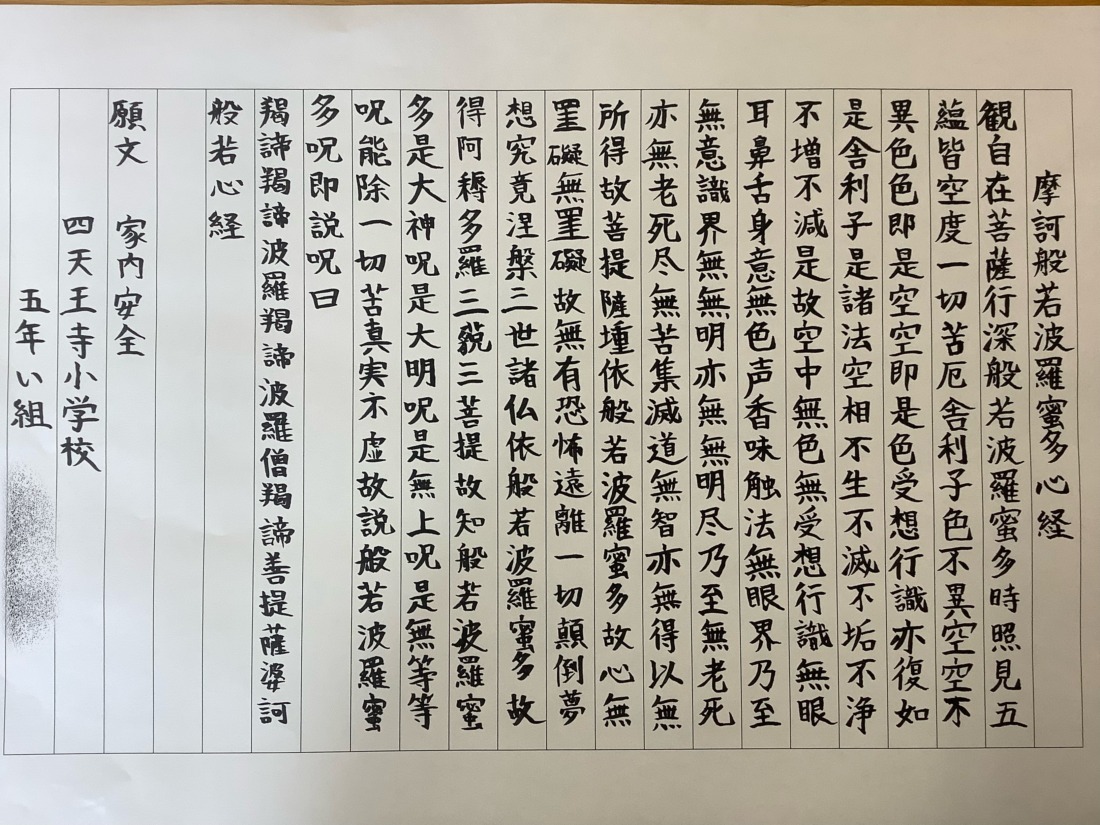 摩訶般若波羅蜜多心経
観自在菩薩行深般若波羅蜜多時照見五
蘊皆空度一切苦厄舎利子色不異空空不
異色色即是空空即是色受想行識亦復如
是舎利子是諸法空相不生不滅不垢不浄
不増不減是故空中無色無受想行識無眼
耳鼻舌身意無色声香味触法無眼界乃至
無意識界無無明亦無無明尽乃至無老死
亦無老死尽無苦集滅道無智亦無得以無
所得故菩提薩埵依般若波羅蜜多故心無
罣礙無罣礙故無有恐怖遠離一切顛倒夢
想究竟涅槃三世諸仏依般若波羅蜜多故
得阿耨多羅三藐三菩提故知般若波羅蜜
多是大神呪是大明呪是無上呪是無等等
呪能除一切苦真実不虚故説般若波羅蜜
多呪即説呪曰
羯諦羯諦波羅羯諦波羅僧羯諦善提薩婆訶
般若心経
願文 家内安全
四天王寺小学校
五年い組